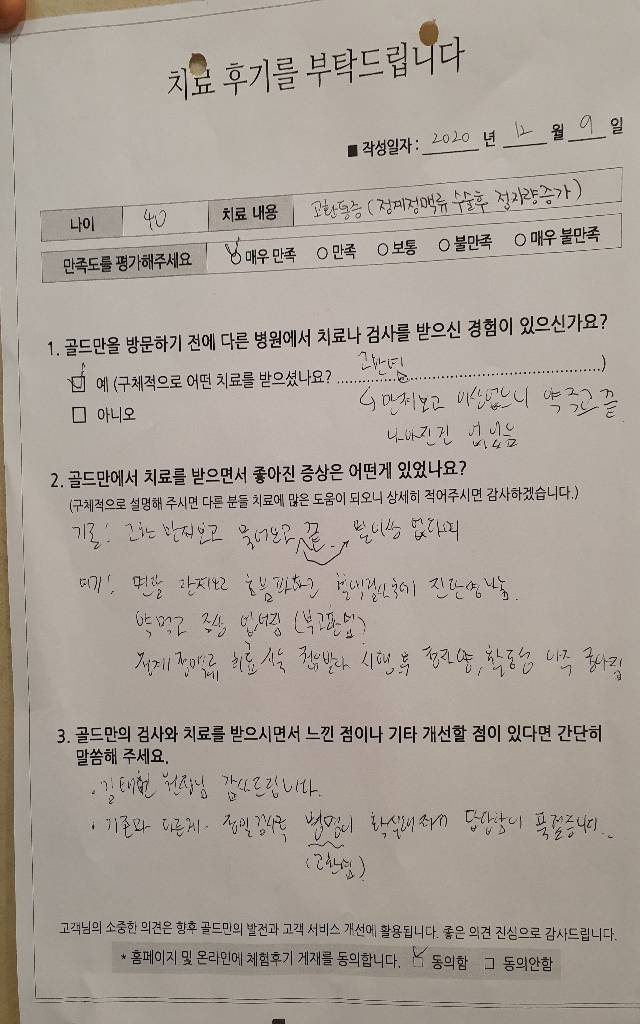 치료 후기를 부탁드립니다
■ 작성일자 : 2020 년 12 월 9 일
나이 40 치료 내용 고환통증 (정계정맥류 수술후 정자량증가)
만족도를 평가해주세요 매우 만족 ○ 만족 ○ 보통 ○ 불만족 ○ 매우 불만족
1. 골드만을 방문하기 전에 다른 병원에서 치료나 검사를 받으신 경험이 있으신가요?
예 (구체적으로 어떤 치료를 받으셨나요? 고환염 )
만져보고 이상없으니 약주고 끝
아니오
나아진건 없었음
2. 골드만에서 치료를 받으면서 좋아진 증상은 어떤게 있었나요?
(구체적으로 설명해 주시면 다른 분들 치료에 많은 도움이 되오니 상세히 적어주시면 감사하겠습니다.)
기존: 고환 만져보고 물어보고 끝. 별이상 없다며
여기: 만져보고 초음파하고 진단명나옴.
약먹고 증상 없어짐 (부고환염)
정계정맥류 수술 권유받아 시행 후 정자량, 활동성 아주 좋아짐
3. 골드만의 검사와 치료를 받으시면서 느낀 점이나 기타 개선할 점이 있다면 간단히
말씀해 주세요.
· 김태헌 원장님 감사드립니다.
· 기존과 다르게 정밀검사로 병명이 확실해져서 답답함이 풀렸습니다.
(고환염)
고객님의 소중한 의견은 향후 골드만의 발전과 고객 서비스 개선에 활용됩니다. 좋은 의견 진심으로 감사드립니다.
* 홈페이지 및 온라인에 체험후기 게재를 동의합니다. 동의함 □ 동의안함